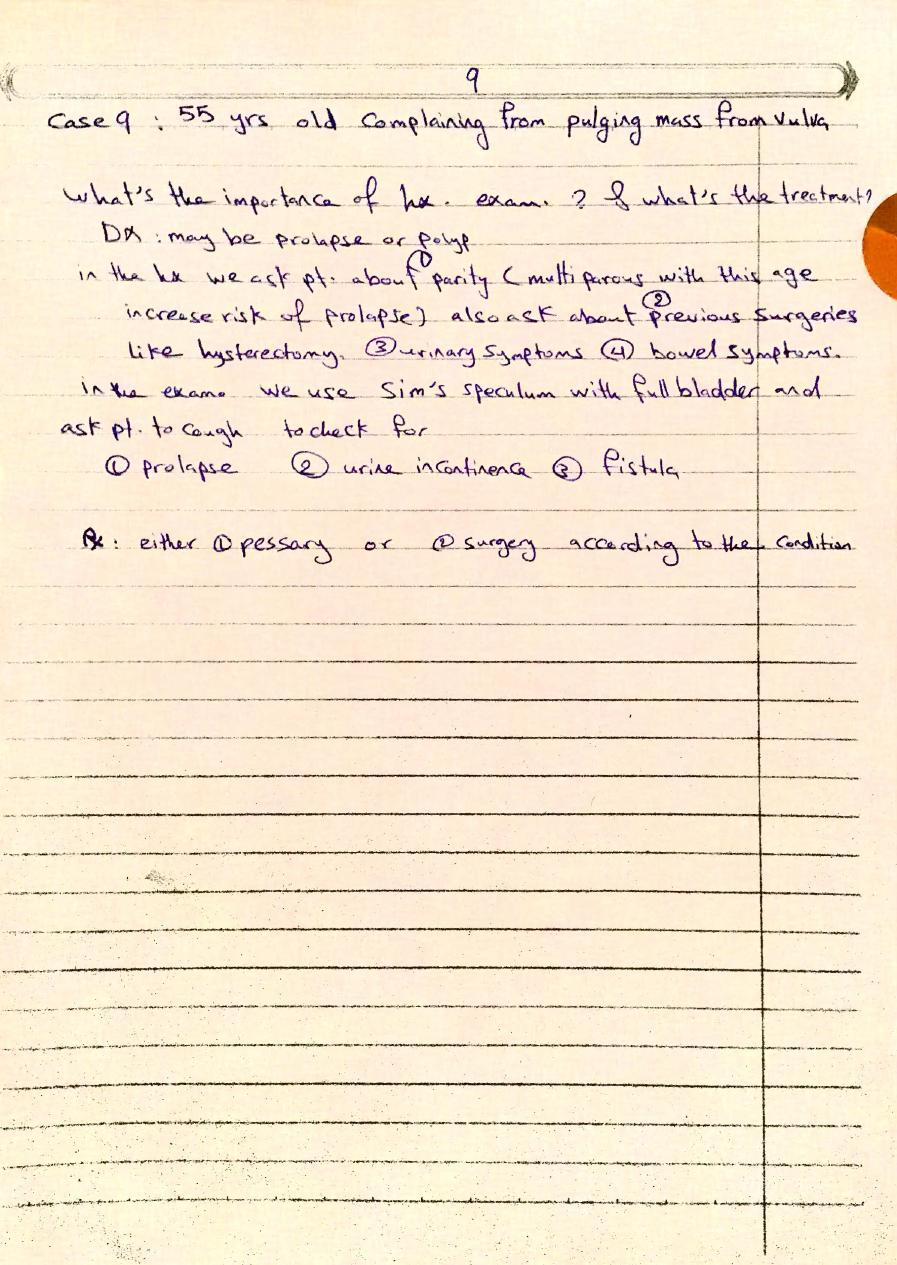 9
Case 9 : 55 yrs old Complaining from pulging mass from vulva
what's the importance of hx. exam. ? & what's the treatment?
DX : may be prolapse or polyp
in the hx we ask pt. about ① parity ( multiparous with this age
increase risk of prolapse) also ask about ② previous surgeries
like hysterectomy. ③ urinary symptoms ④ bowel symptoms.
in the exam. we use Sim's speculum with full bladder and
ask pt. to cough to check for
① prolapse ② urine incontinence ③ fistula
Rx : either ① pessary or ② surgery according to the condition